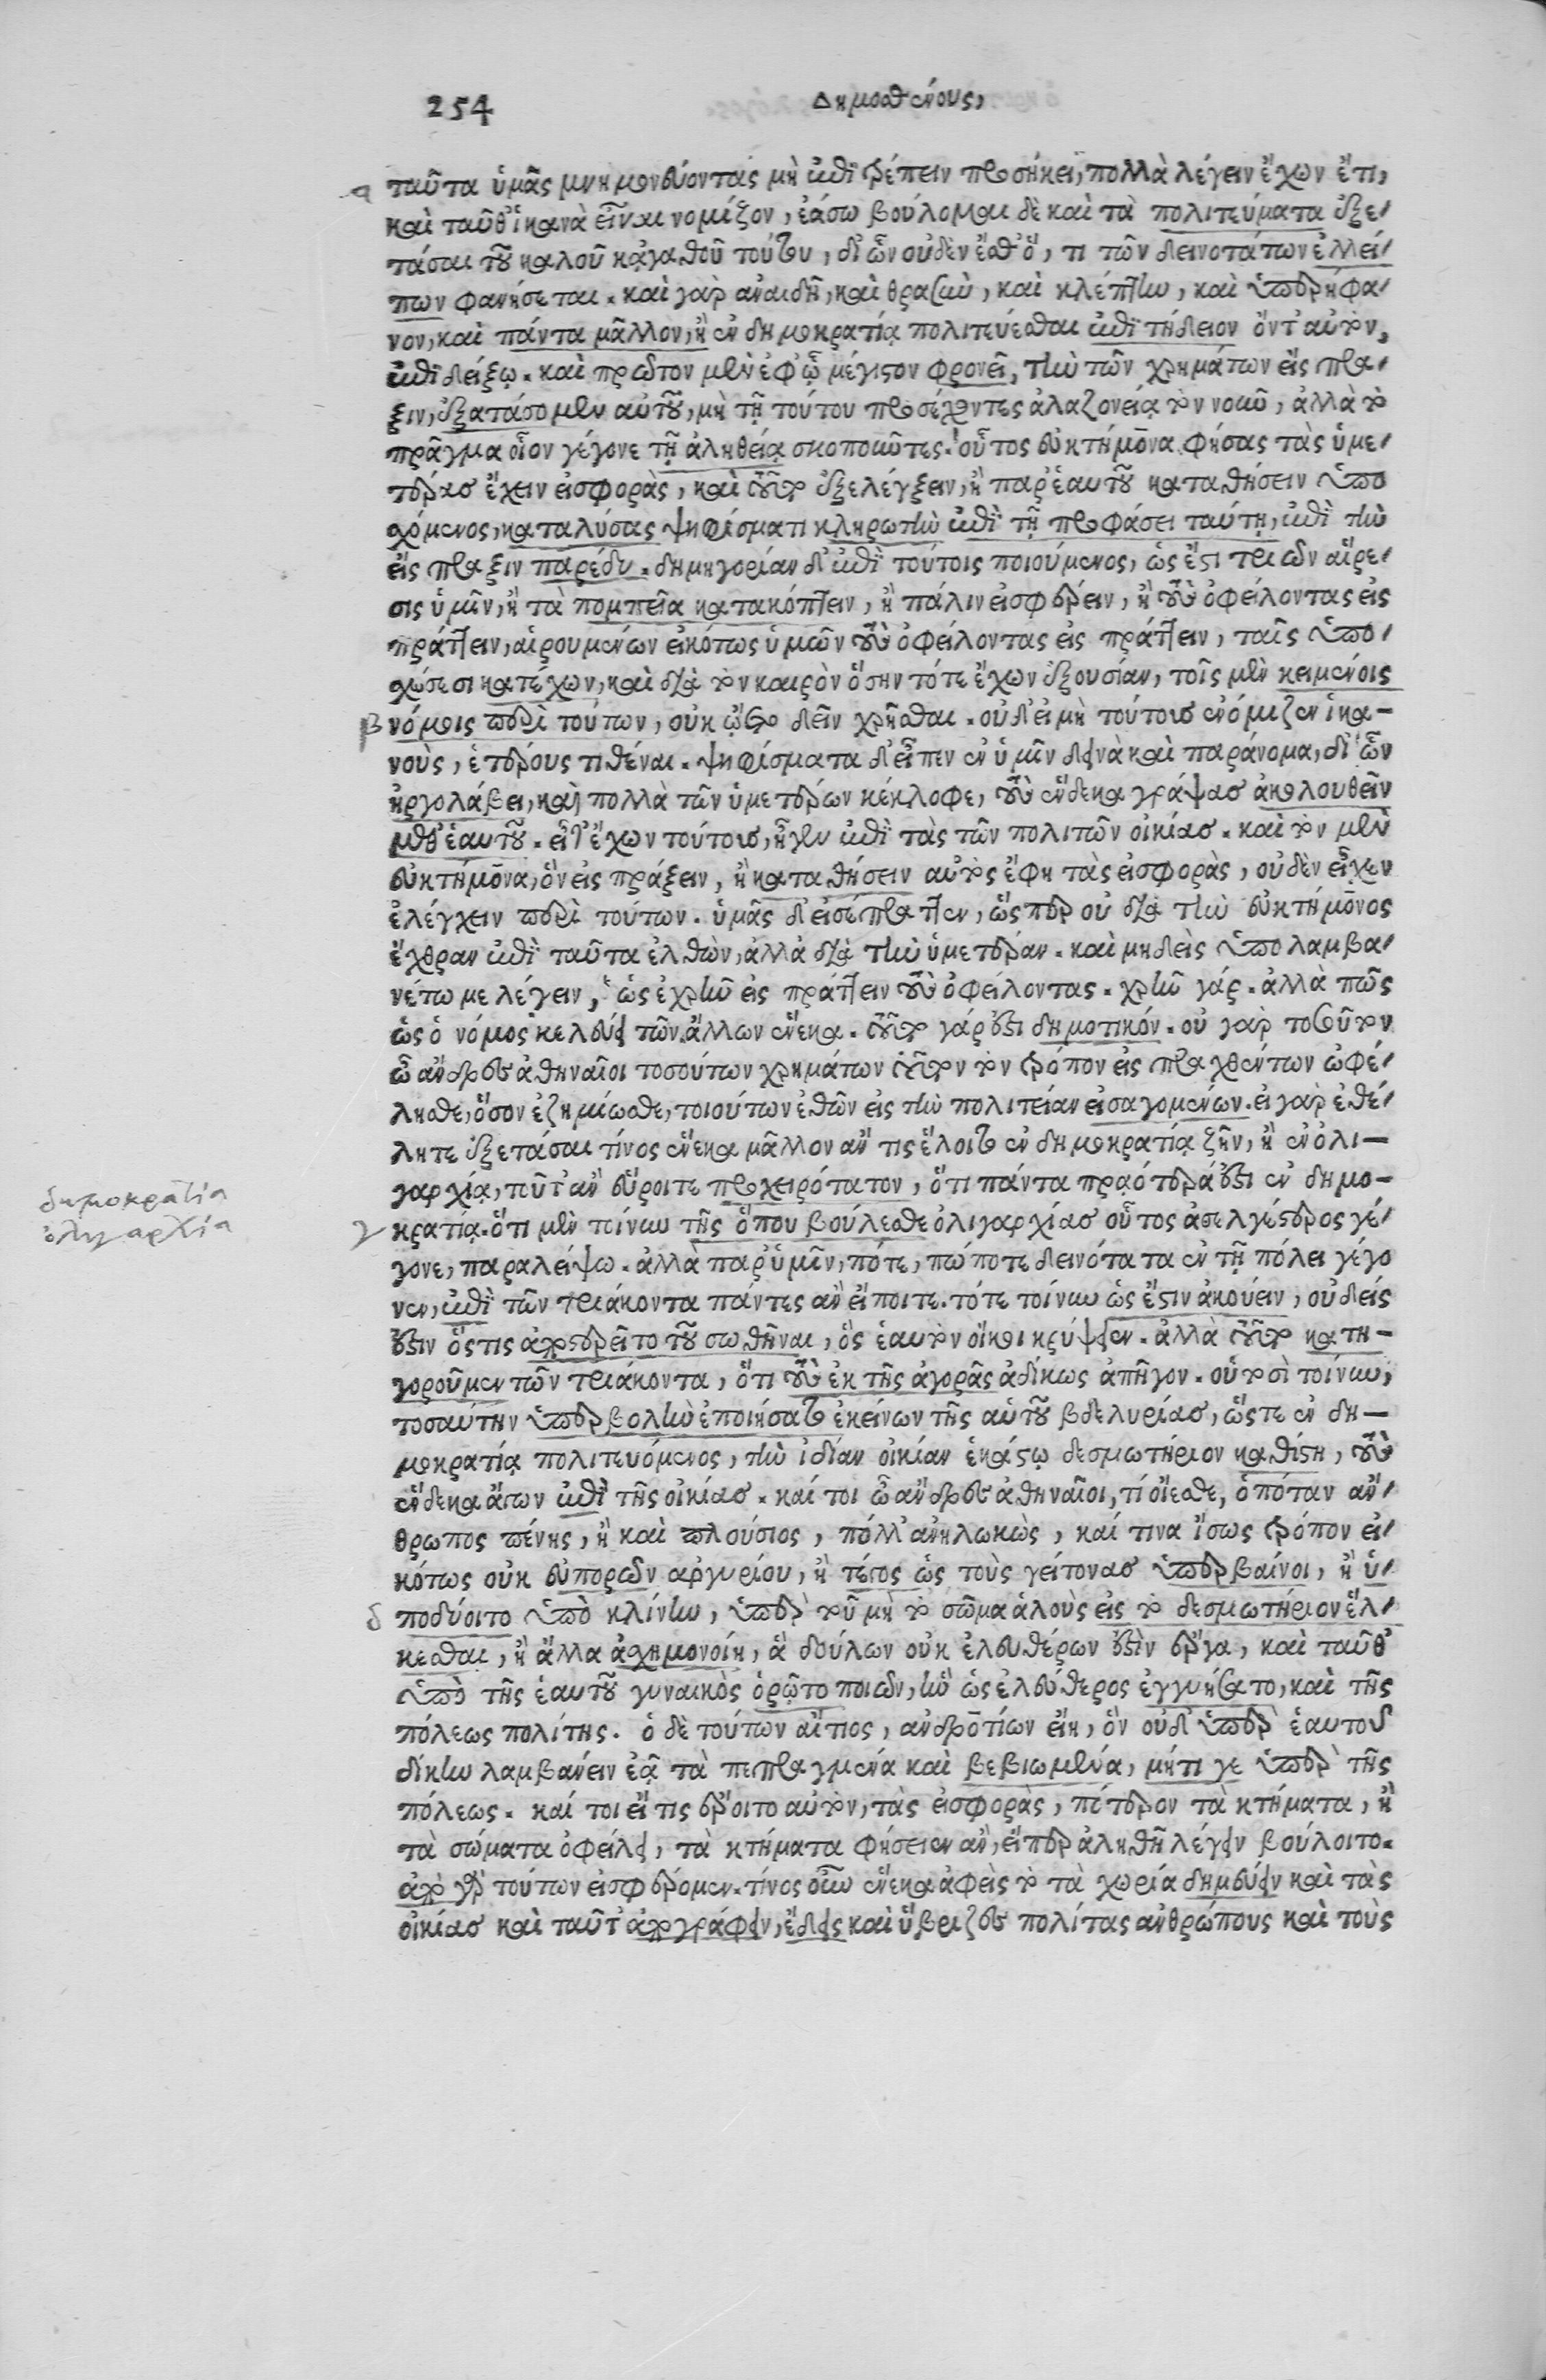 254 Δημοσθένους,
α ταῦτα ὑμᾶς μνημονεύοντας μὴ ἐπιτρέπειν προσήκει, πολλὰ λέγειν ἔχων ἔτι,
καὶ ταῦθ' ἱκανὰ εἶναι νομίζον, ἐάσω βούλομαι δὲ καὶ τὰ πολιτεύματα ἐξε-
τάσαι τοῦ καλοῦ κᾀγαθοῦ τούτου, δι' ὧν οὐδὲν ἔσθ' ὅ, τι τῶν δεινοτάτων ἐλλεί-
πων φανήσεται. καὶ γὰρ ἀναιδῆ, καὶ θρασὺν, καὶ κλέπτην, καὶ ὑπερήφα-
νον, καὶ πάντα μᾶλλον, ἢ ἐν δημοκρατίᾳ πολιτεύεσθαι ἐπιτήδειον ὄντ' αὐτὸν,
ἐπιδείξω. καὶ πρῶτον μὲν ἐφ' ᾧ μέγιστον φρονεῖ, τὴν τῶν χρημάτων εἴς πρα-
ξιν, ἐξατάσομεν αὐτοῦ, μὴ τῇ τούτου προσέχοντες ἀλαζονείᾳ τὸν νοῦν, ἀλλὰ τὸ
πρᾶγμα οἷον γέγονε τῇ ἀληθείᾳ σκοποῦντες. οὗτος εὐκτήμονα φήσας τὰς ὑμε-
τέρας ἔχειν εἰσφορὰς, καὶ τοῦτο ἐξελέγξειν, ἢ παρ' ἑαυτοῦ καταθήσειν ὑπο
σχόμενος, καταλύσας ψηφίσματι κληρωτὴν ἐπὶ τῇ προφάσει ταύτῃ, ἐπὶ τὴν
εἰς πραξιν παρέδυ. δημηγορίαν δ' ἐπὶ τούτοις ποιούμενος, ὡς ἔστι τριῶν αἵρε-
σις ὑμῖν, ἢ τὰ πομπεῖα κατακόπτειν, ἢ πάλιν εἰσφέρειν, ἢ τοὺς ὀφείλοντας εἰς
πράττειν, αἱρουμένων εἰκότως ὑμῶν τοὺς ὀφείλοντας εἰς πράττειν, ταῖς ὑπο-
σχέσεσι κατέχων, καὶ διὰ τὸν καιρὸν ὅσην τότε ἔχων ἐξουσίαν, τοῖς μὲν κειμένοις
β νόμοις περὶ τούτων, οὐκ ᾤετο δεῖν χρῆσθαι. οὐδ' εἰ μὴ τούτους ἐνόμιζεν ἱκα-
νοὺς, ἑτέρους τιθέναι. ψηφίσματα δ' εἶπεν ἐν ὑμῖν δεινὰ καὶ παράνομα, δι' ὧν
ἠργολάβει, καὶ πολλὰ τῶν ὑμετέρων κέκλοφε, τοὺς ἕνδεκα γράψας ἀκολουθεῖν
μεθ' ἑαυτοῦ. εἶτ' ἔχων τούτους, ἦγεν ἐπὶ τὰς τῶν πολιτῶν οἰκίας. καὶ τὸν μὲν
εὐκτήμονα, ὃν εἰς πράξειν, ἢ καταθήσειν αὐτὸς ἔφη τὰς εἰσφορὰς, οὐδὲν εἶχεν
ἐλέγχειν περὶ τούτων. ὑμᾶς δ' εἰσέπραττεν, ὥσπερ οὐ διὰ τὴν εὐκτήμονος
ἔχθραν ἐπὶ ταῦτα ἐλθὼν, ἀλλὰ διὰ τὴν ὑμετέραν. καὶ μηδεὶς ὑπολαμβα-
νέτω με λέγειν, ὡς ἐχρῆν εἰς πράττειν τοὺς ὀφείλοντας. χρῆν γάρ. ἀλλὰ πῶς
ὡς ὁ νόμος κελεύει τῶν ἄλλων ἕνεκα. τοῦτο γάρ ἐστι δημοτικόν. οὐ γὰρ τοσοῦτον
ὦ ἄνδρες ἀθηναῖοι τοσούτων χρημάτων τοῦτον τὸν τρόπον εἰς πραχθέντων ὠφέ-
λησθε, ὅσον ἐζημίωσθε, τοιούτων ἐθῶν εἰς τὴν πολιτείαν εἰσαγομένων. εἰ γὰρ ἐθέ-
λητε ἐξετάσαι τίνος ἕνεκα μᾶλλον ἄν τις ἕλοιτο ἐν δημοκρατίᾳ ζῆν, ἢ ἐν ὀλι-
γαρχίᾳ, τοῦτ' ἂν εὕροιτε προχειρότατον, ὅτι πάντα πρᾳότερά ἐστι ἐν δημο-
δημοκρατία
ὀλιγαρχία
γ κρατίᾳ. ὅτι μὲν τοίνυν τῆς ὅπου βούλεσθε ὀλιγαρχίας οὗτος ἀσελγέστερος γέ-
γονε, παραλείψω. ἀλλὰ παρ' ὑμῖν, πότε, πώποτε δεινότατα ἐν τῇ πόλει γέγο
νεν, ἐπὶ τῶν τριάκοντα πάντες ἂν εἴποιτε. τότε τοίνυν ὡς ἔστιν ἀκούειν, οὐδείς
ἐστιν ὅστις ἀπεστερεῖτο τοῦ σωθῆναι, ὃς ἑαυτὸν οἴκοι κρύψειεν. ἀλλὰ τοῦτο κατη-
γοροῦμεν τῶν τριάκοντα, ὅτι τοὺς ἐκ τῆς ἀγορᾶς ἀδίκως ἀπῆγον. οὑτοσὶ τοίνυν,
τοσαύτην ὑπερβολὴν ἐποιήσατο ἐκείνων τῆς αὑτοῦ βδελυρίας, ὥστε ἐν δη-
μοκρατίᾳ πολιτευόμενος, τὴν ἰδίαν οἰκίαν ἑκάστῳ δεσμωτήριον καθίστη, τοὺς
ἕνδεκα ἄγων ἐπὶ τῆς οἰκίας. καί τοι ὦ ἄνδρες ἀθηναῖοι, τί οἴεσθε, ὁπόταν ἄν-
θρωπος πένης, ἢ καὶ πλούσιος, πόλλ' ἀνηλωκὼς, καί τινα ἴσως τρόπον εἰ-
κότως οὐκ εὐπορῶν ἀργυρίου, ἢ τέγος ὡς τοὺς γείτονας ὑπερβαίνοι, ἢ ὑ-
δ ποδύοιτο ὑπὸ κλίνην, ὑπὲρ τοῦ μὴ τὸ σῶμα ἁλοὺς εἰς τὸ δεσμωτήριον ἕλ-
κεσθαι, ἢ ἄλλα ἀσχημονοίη, ἃ δούλων οὐκ ἐλευθέρων ἐστὶν ἔργα, καὶ ταῦθ'
ὑπὸ τῆς ἑαυτοῦ γυναικὸς ὁρῷτο ποιῶν, ἣν ὡς ἐλεύθερος ἐγγυήσατο, καὶ τῆς
πόλεως πολίτης. ὁ δὲ τούτων αἴτιος, ἀνδροτίων εἴη, ὃν οὐδ' ὑπὲρ ἑαυτοῦ
δίκην λαμβάνειν ἐᾷ τὰ πεπραγμένα καὶ βεβιωμένα, μήτι γε ὑπὲρ τῆς
πόλεως. καί τοι εἴ τις ἔροιτο αὐτὸν, τὰς εἰσφορὰς, πότερον τὰ κτήματα, ἢ
τὰ σώματα ὀφείλει, τὰ κτήματα φήσειεν ἂν, εἴπερ ἀληθῆ λέγειν βούλοιτο.
ἀπὸ γὰρ τούτων εἰσφέρομεν. τίνος οὖν ἕνεκα ἀφεὶς τὸ τὰ χωρία δημεύειν καὶ τὰς
οἰκίας καὶ ταῦτ' ἀπογράφειν, ἔδεις καὶ ὕβριζες πολίτας ἀνθρώπους καὶ τοὺς